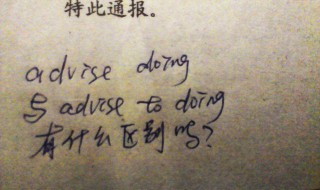 特此通报。
advise doing
与 advise to doing
有什么区别吗?